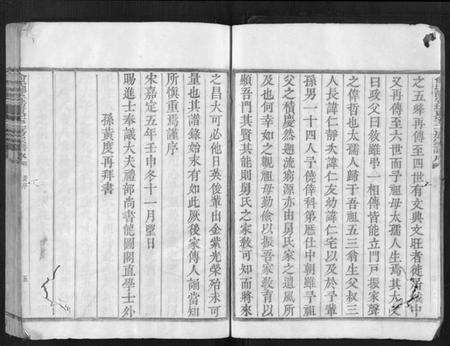 之五弟再傳至四世有文典文旺者徙
又再傳至六世而子祖母太孺人生焉其
曰政父曰敘雖弔一相傳皆能立門戸振家聲
之偉哲也太孺人歸于吾祖五三翁生父叔三
人長諱仁靜次諱仁友幼諱仁宅以及於子輩
孫男一十四人子僥倖科第歷仕中朝雖子祖
父之積慶然趨流窮源亦由舅氏之遺風所
及也何幸如之觀祖母勤儉以振吾家教育以
顯吾門其賢其能則舅氏之家教可知而將來
之昌大可必他日英後輩出金紫光榮殆未可
量也其譜錄始末有如此厥後家傳人誦當知
所慎重焉謹序
宋嘉定五年壬申冬十一月望日
賜進士奉議大夫禮部尚書龍圖閣直學士外
孫黃度再拜書